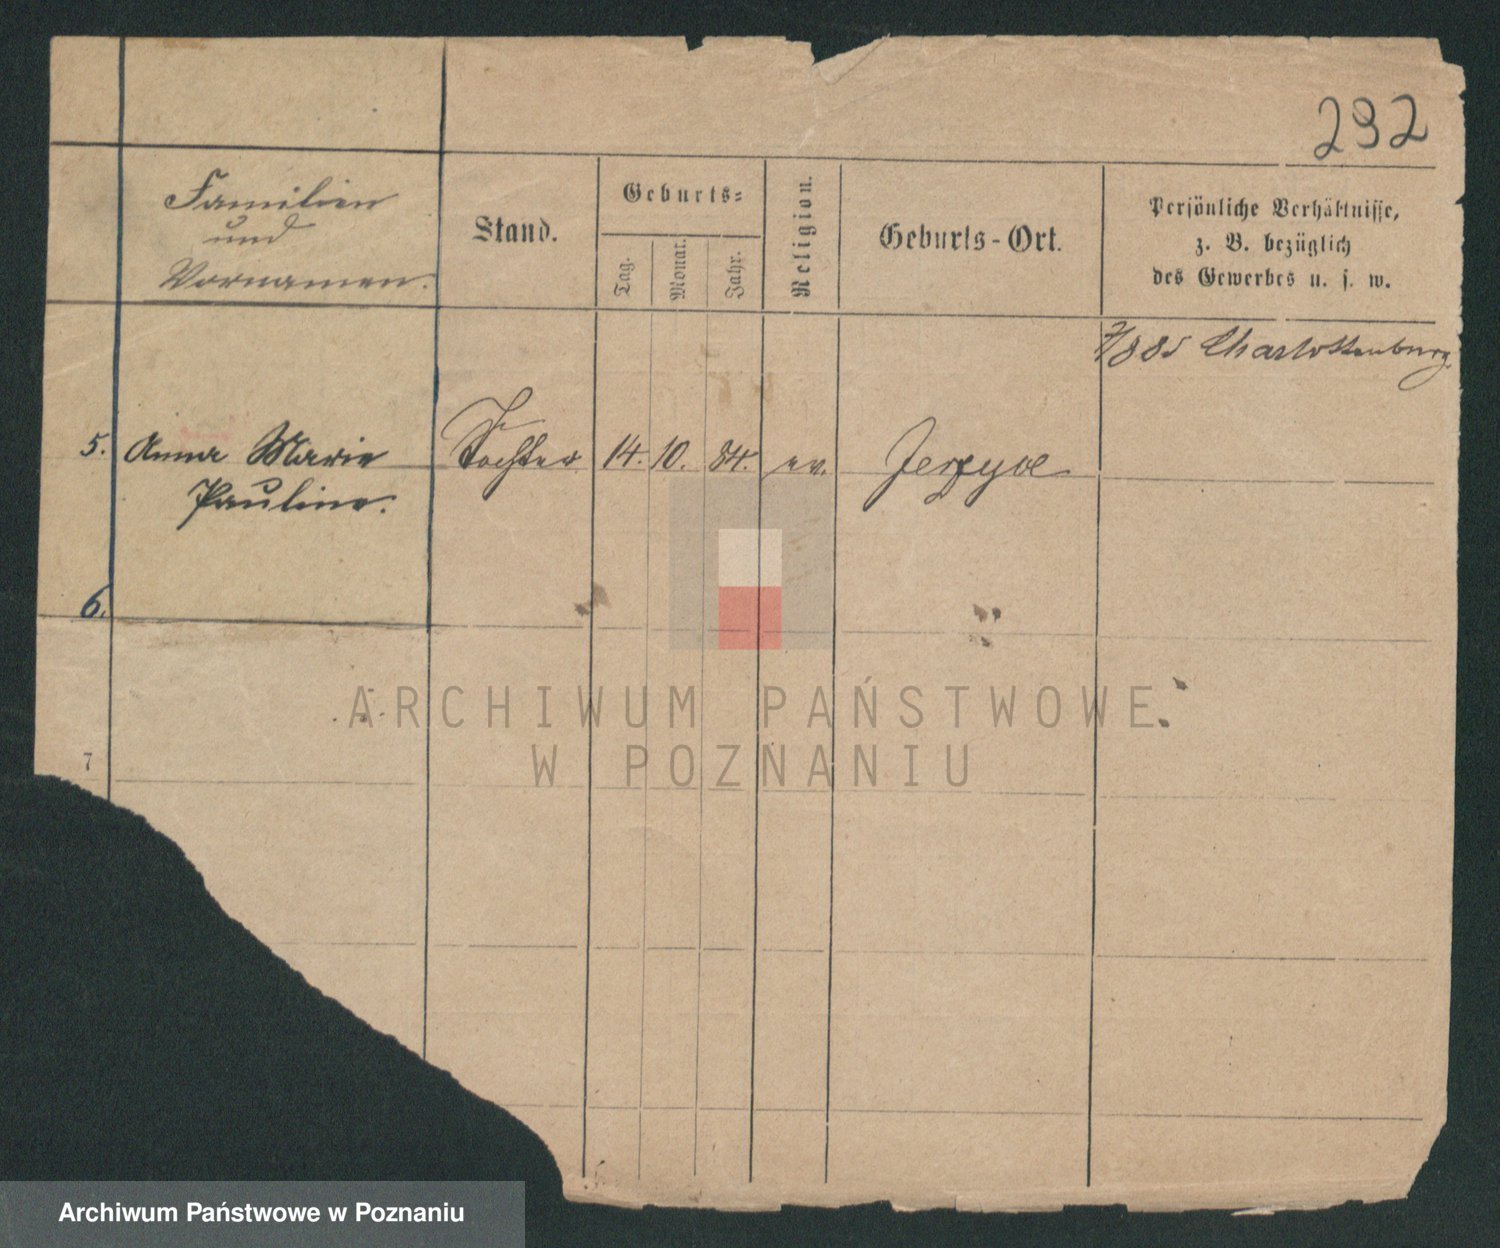 292
Familien
und
Vornamen.
Stand.
Geburts=
Tag.
Monat.
Jahr.
Religion.
Geburts-Ort.
Persönliche Verhältnisse,
z. B. bezüglich
des Gewerbes u. s. w.
Charlottenburg.
5. Anna Marie Tochter 14. 10. 84. ev.
Pauline.
6.
7
ARCHIWUM PAŃSTWOWE
W POZNANIU
Archiwum Państwowe w Poznaniu